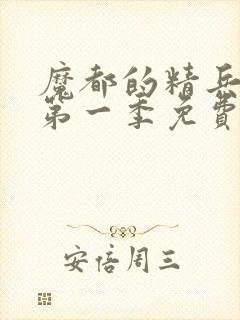 魔都的精兵
第一季免费
安倍周三